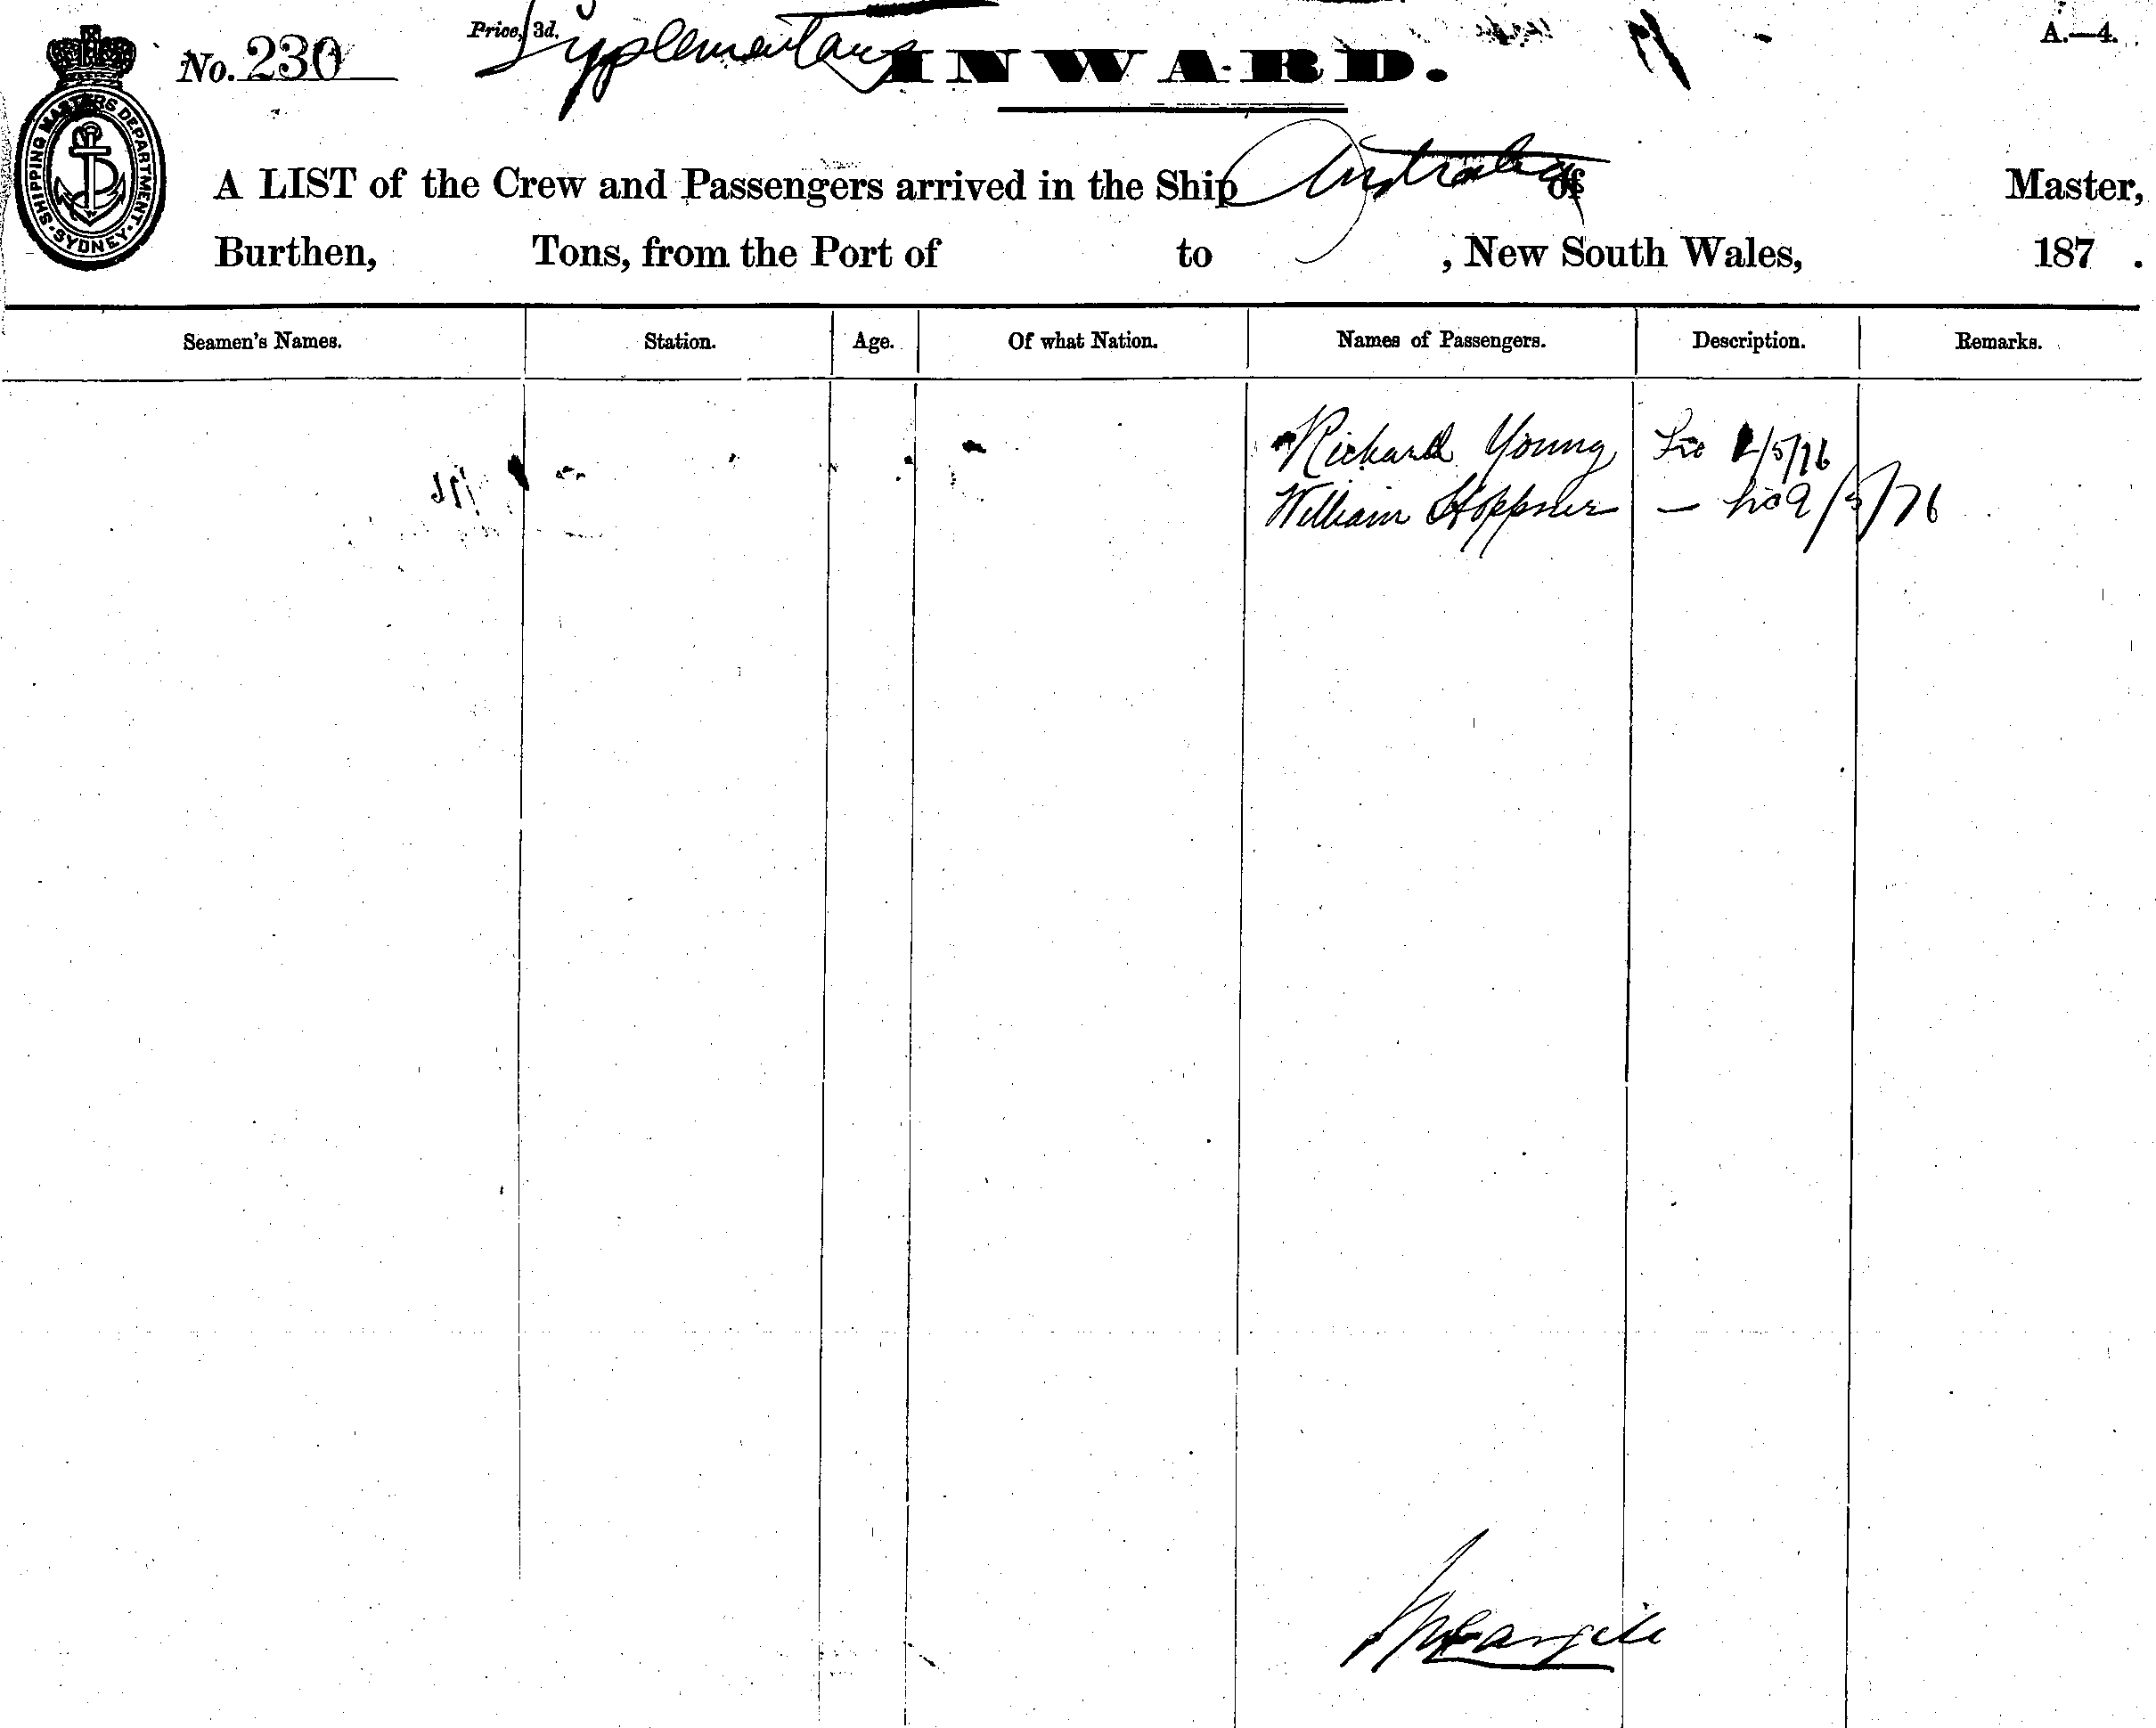 No. 230 Price, 3d. Supplementary INWARD. A.—4.
SHIPPING MASTERS DEPARTMENT · SYDNEY ·
A LIST of the Crew and Passengers arrived in the Ship Australia of Master,
Burthen, Tons, from the Port of to , New South Wales, 187 .
Seamen's Names. Station. Age. Of what Nation. Names of Passengers. Description. Remarks.
Richard Young /5/76
William Hoppner — 9/5/76